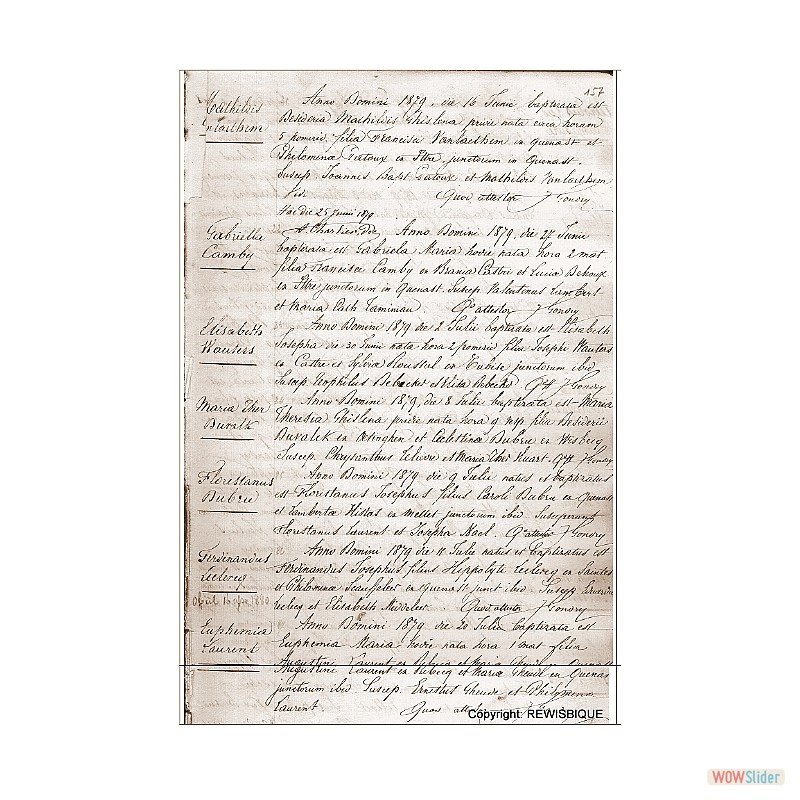 157
Mathildis
Anno Domini 1879. die 16 Junii baptizata est
Desideria Mathildis Ghislena pridie nata circa horam
5 pomerid. filia Francisci Vanlaethem in Quenast et
Philomina Patoux ex Ittre junctorum in Quenast.
Suscep. Joannes Bapt Patoux et Mathildis Vanlaethem
Quod attestor J Gondry
Hac die 25 Junii 1879
Gabriella
Camby
A. Charlier, Anno Domini 1879. die 27 Junii
baptizata est Gabriela Maria hodie nata hora 2 mat
filia Francisci Camby ex Brania Castri et Lucia Dehoux
ex Ittre junctorum in Quenast. Suscep. Valentinus Lambert
et Maria Cath Taminiau. Q attestor J Gondry
Elisabeth
Wauters
Anno Domini 1879 die 2 Julii baptizata est Elisabeth
Josepha die 30 Junii nata hora 2 pomerid filia Josephi Wauters
ex Castre et Sylvia Roussel ex Tubise junctorum ibid
Suscep Theophilus Debecker et Elisa J Gondry
Maria Ther
Duvalk
Anno Domini 1879, die 8 Julii baptizata est Maria
Theresia Ghislena pridie nata hora 9 filia Desiderii
Duvalck ex Oetinghen et Celestina Dubru ex Wisbecq
Suscep. Chrysanthus Lelievre et Maria Ther Huart. J Gondry
Florestanus
Dubru
Anno Domini 1879 die 9 Julii natus et baptizatus
est Florestanus Josephus filius Caroli Dubru ex Quenast
et Lamberta ex Mellet junctorum ibid Susceperunt
Florestanus Laurent et Josepha Q attestor J Gondry
Ferdinandus
Leclercq
Anno Domini 1879 die 11 Julii natus et baptizatus est
Ferdinandus Josephus filius Hippolyte Leclercq ex Saintes
et Philomina ex Quenast junct ibid. Suscep
Leclercq et Elisabeth Quod attestor J Gondry
Euphemia
Laurent
Anno Domini 1879 die 20 Julii baptizata est
Euphemia Maria hodie nata hora 1 mat filia
Augustini Laurent ex Rebecq et Maria
Augustini Laurent ex Rebecq et Maria ex Quenast
junctorum ibid Suscep. Ernestus et Philomena
Laurent. Quod
Copyright: REWISBIQUE
WOWSlider